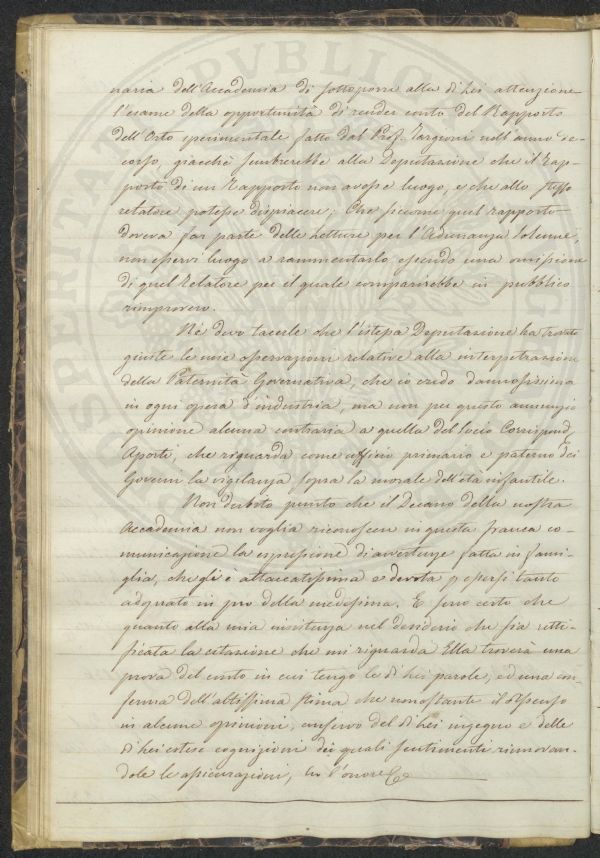 naria dell'Accademia di sottoporre alla di Lei attenzione
l'esame della opportunità di render conto del Rapporto
dell'Orto sperimentale fatto dal Prof. Targioni nell'anno de-
corso, giacchè sembrerebbe alla Deputazione che il Rap-
porto di un Rapporto non avesse luogo, e che allo stesso
relatore potesse dispiacere; Che siccome quel rapporto
doveva far parte delle Letture per l'Adunanza solenne,
non eravi luogo a rammentarlo, essendo una omissione
di quel Relatore per il quale comparirebbe in pubblico
rimprovero.
Nè devo tacerle che l'istessa Deputazione ha trovato
giuste le mie osservazioni relative alla interpetrazione
della Paternità Governativa, che io credo dannosissima
in ogni opera d'industria, ma non per questo annunzio
opinione alcuna contraria a quella del Socio Corrispond.
Aporti, che riguarda come ufficio primario e paterno dei
Governi la vigilanza sopra la morale dell'età infantile.
Non dubito punto che il Decano della nostra
Accademia non voglia riconoscere in questa franca co-
municazione la espressione di avvertenze fatta in fami-
glia, che gli è attaccatissima e devota p essersi tanto
adoprato in pro della medesima. E sono certo che
quanto alla mia insistenza nel desiderio che sia retti-
ficata la citazione che mi riguarda Ella troverà una
prova del conto in cui tengo le di Lei parole, ed una con-
ferma dell'altissima stima che nonostante il dissenso
in alcune opinioni, conservo del di Lei ingegno e delle
di Lei estese cognizioni dei quali sentimenti rinnovan-
dole le assicurazioni, ho l'onore &